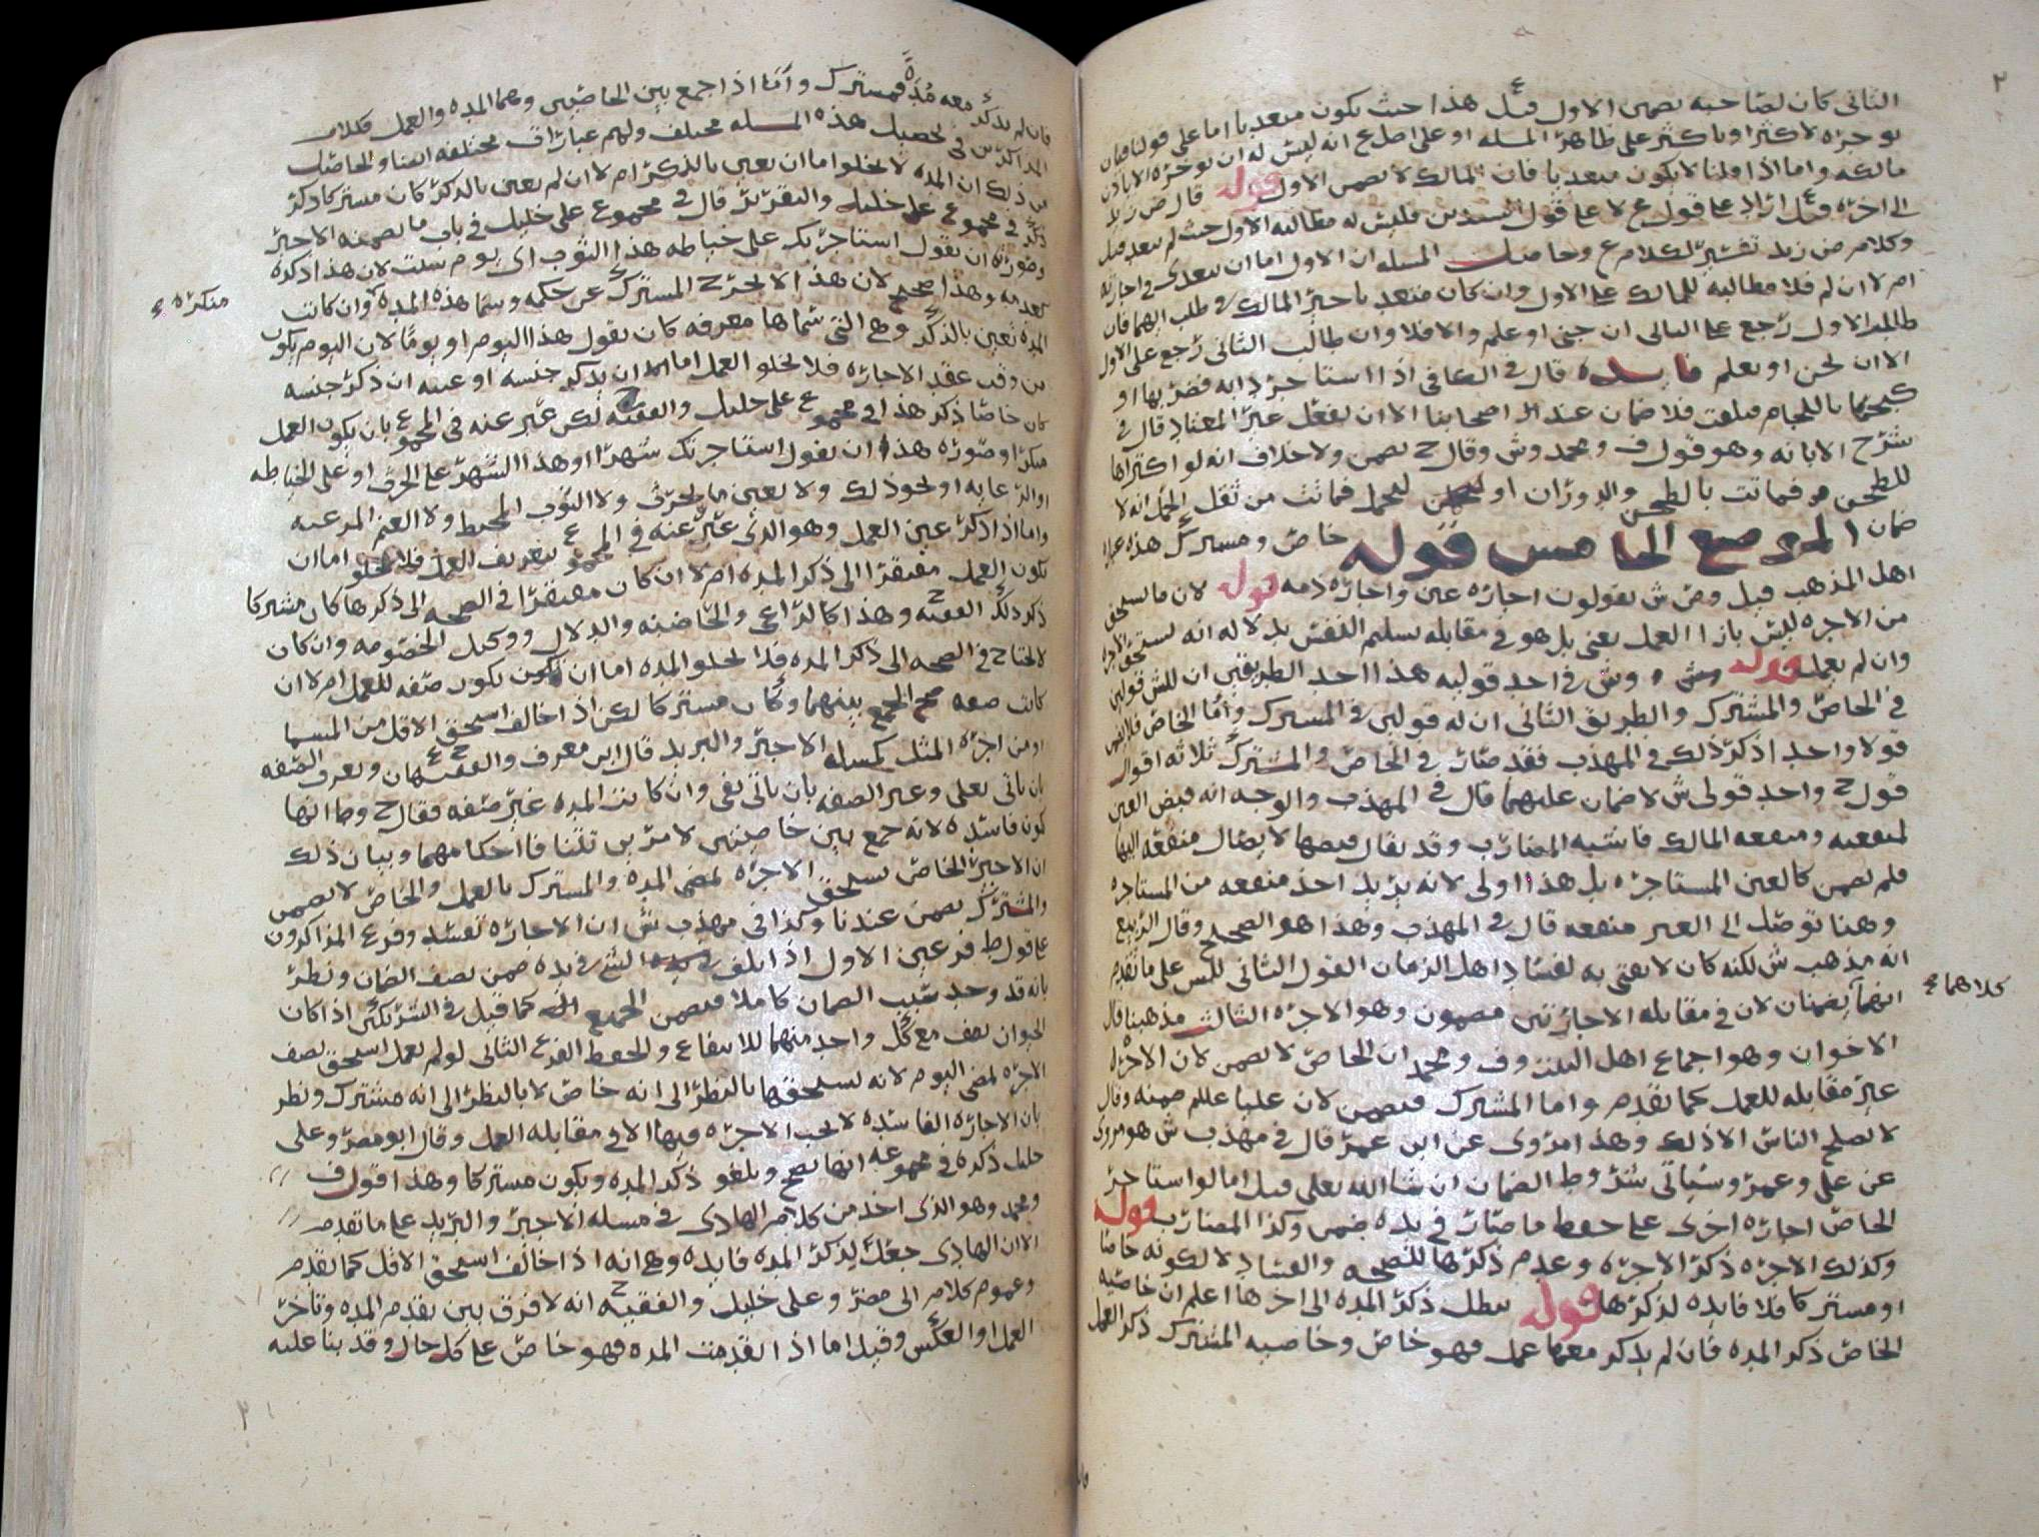 الثاني كان لصاحبه يضمن الاول قيل هذا حيث يكون متعديا اما على قولنا فان
يوجره لاكثر او باكثر على ظاهر المسله او على اصل ع انه ليس له ان يوجره الا باذن
مالكه واما اذا قلنا لا يكون متعديا فان المالك لا يضمن الاول قوله قال ض زيد
الى اخره قيل اراد على قول ع لا على قول السيدين فليس له مطالبه الاول حيث لم يتعد قيل
وكلام ض زيد تفسير لكلام ع وحاصل المسله ان الاول اما ان يتعدى في اجارته
ام لا ان لم فلا مطالبه للمالك على الاول وان كان متعديا خير المالك في طلب ايهما فان
طالب الاول رجع على الثاني ان جنى او علم والا فلا وان طالب الثاني رجع على الاول
الا ان يجن او يعلم فايده قال في الكافي اذا استاجر دابه فضربها او
كبحها باللجام فتلفت فلا ضمان عند اصحابنا الا ان يفعل غير المعتاد قال في
شرح الابانه وهو قول ف ومحمد وش وقال ح يضمن ولا خلاف انه لو اكتراها
للطحن فماتت بالطحن والدوران او ليحمل فماتت من ثقل الحمل انه لا
ضمان الموضع الخامس قوله خاص ومشترك هذه عبارة
اهل المذهب قيل وص ش يقولون اجاره عين واجاره ذمه قوله لان ما يستحق
من الاجره ليس بازا العمل يعني بل هو في مقابله تسليم النفس بدلاله انه يستحق الاجره
وان لم يعمل قوله وش وش في احد قوليه هذا احد الطريقين ان للش قولين
في الخاص والمشترك والطريق الثاني ان له قولين في المشترك واما الخاص فلا يضمن
قولا واحدا ذكر ذلك في المهذب فقد صار في الخاص والمشترك ثلاثه اقوال
قول ح واحد قولي ش لا ضمان عليهما قال في المهذب والوجه انه قبض العين
لمنفعته ومنفعه المالك فاشبه المضارب وقد يقال قبضها لايصال منفعه اليها
فلم يضمن كالعين المستاجره بل هذا اولى لانه يريد اخذ منفعه من المستاجره
وهنا توصل الى العين منفعه قال في المهذب وهذا هو الصحيح وقال الربيع
انه مذهب ش لكنه كان لا يفتي به لفساد اهل الزمان القول الثاني للش على ما تقدم
انهما يضمنان لان في مقابله الاجارتين مضمون وهو الاجره الثالث مذهبنا قال
كلاهما ع
الاخوان وهو اجماع اهل البيت وف ومحمد ان الخاص لا يضمن لان الاجره
غير مقابله للعمل كما تقدم واما المشترك فيضمن لان عليا علم ضمنه وقال
لا يصلح الناس الا ذلك وهذا مروي عن ابن عمر قال في مهذب ش هو مروى
عن علي وعمر وسياتي شروط الضمان ان شا الله تعلى قيل اما لو استاجر
الخاص اجاره اخرى على حفظ ما صار في يده ضمن وكذا المضارب قوله
وكذلك الاجره ذكر الاجره وعدم ذكرها للصحه والفساد لا لكونه خاصا
او مشتركا فلا فايده لذكرها قوله يبطل ذكر المده الى اخرها اعلم ان خاصيه
الخاص ذكر المده فان لم يذكر معها عمل فهو خاص وخاصيه المشترك ذكر العمل
فان لم يذكر معه مدة فمشترك واما اذا جمع بين الخاصيتين وهما المده والعمل فكلام
المذاكرين في تحصيل هذه المسله مختلف ولهم عبارات مختلفه ايضا والحاصل
من ذلك ان المده لا يخلوا اما ان تعين بالذكر ام لا ان لم تعين بالذكر كان مشتركا ذكر
ذكره في مجموع علي خليل والتقرير قال في مجموع علي خليل في باب ما يضمنه الاجير
وصورته ان يقول استاجرتك على خياطه هذا الثوب اي يوم شيت لان هذا ذكره
بعد مده وهذا صحيح لان هذا لا يخرج المشترك عن حكمه وسما هذه المده وان كانت
منكره ع
المده تعين بالذكر وهي التي سماها معرفه كان يقول هذا اليوم او يوما لان اليوم يكون
من وقت عقد الاجاره فلا يخلو العمل اما ان يذكر جنسه او عينه ان ذكر جنسه
كان خاصا ذكر هذا في مجموع علي خليل والفقيه ح لكن عبر عنه في المجموع بان يكون العمل
منكرا وصوره هذا ان يقول استاجرتك شهرا او هذا الشهر على الحرث او على الخياطه
او الرعايه او نحو ذلك ولا يعين ما يحرث ولا الثوب المخيط ولا الغنم المرعيه
واما اذا ذكر عين العمل وهو الذي عبر عنه في المجموع بتعريف العمل فلا يخلو اما ان
يكون العمل مفتقرا الى ذكر المده ام لا ان كان مفتقرا في الصحه الى ذكرها كان مشتركا
ذكر ذلك الفقيه ح وهذا كالراعي والحاضنه والدلال ووكيل الخصومه وان كان
لا يحتاج في الصحه الى ذكر المده فلا يخلو المده اما ان تكون صفه للعمل ام لا ان
كانت صفه صح الجمع بينهما وكان مشتركا لكن اذا خالف استحق الاقل من المسما
او من اجره المثل كمسله الاجير والبريد قال ابن معرف والفقيهان ح ع وتعرف الصفه
بان ياتي بعلى وعين الصفه بان ياتي بفي وان كانت المده غير صفه فقال ح وط انها
تكون فاسده لانه جمع بين خاصيتين لامرين تنافا احكامهما وبيان ذلك
ان الاجير الخاص يستحق الاجره لمضي المده والمشترك بالعمل والخاص لا يضمن
والمشترك يضمن عندنا وكذا في مهذب ش ان الاجاره تفسد وفرع المذاكرون
على قول ط فرعين الاول اذا تلف الشي في يده ضمن نصف الضمان ونظر
بانه قد وجد سبب الضمان كاملا فيضمن الجميع كما قيل في الشريكين اذا كان
الحيوان نصف مع كل واحد منهما للانتفاع والحفظ الفرع الثاني لو لم يعمل استحق نصف
الاجره لمضي اليوم لانه يستحقها بالنظر الى انه خاص لا بالنظر الى انه مشترك ونظر
بان الاجاره الفاسده لا تجب الاجره فيها الا في مقابله العمل وقال ابو مضر وعلي
خليل ذكره في مجموعه انها تصح ويلغو ذكر المده ويكون مشتركا وهذا قول ف
ومحمد وهو الذي اخذ من كلام الهادي في مسله الاجير والبريد على ما تقدم
الا ان الهادي جعل لذكر المده فايده وهي انه اذا خالف استحق الاقل كما تقدم
وعموم كلام ابي مضر وعلي خليل والفقيه ح انه لا فرق بين تقدم المده وتاخر
العمل او العكس وقيل اما اذا تقدمت المده فهو خاص على كل حال وقد بنا عليه